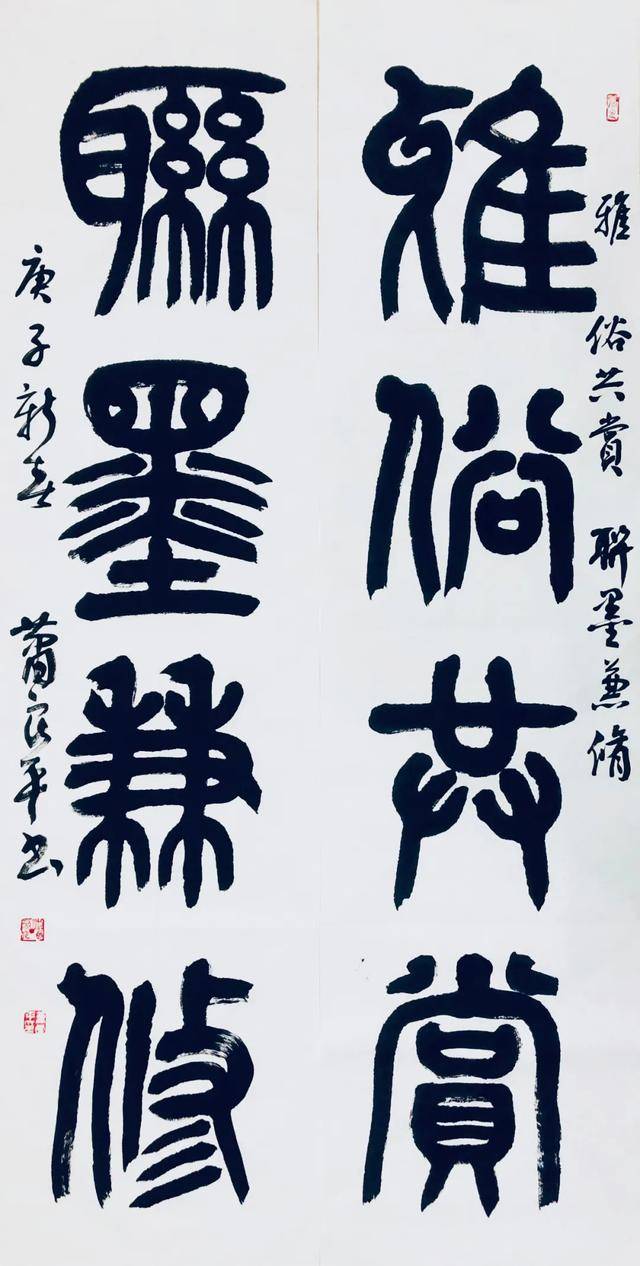 雅俗共賞 聯墨兼脩
雅俗共賞
聯墨兼修
庚子新春 蕭平書